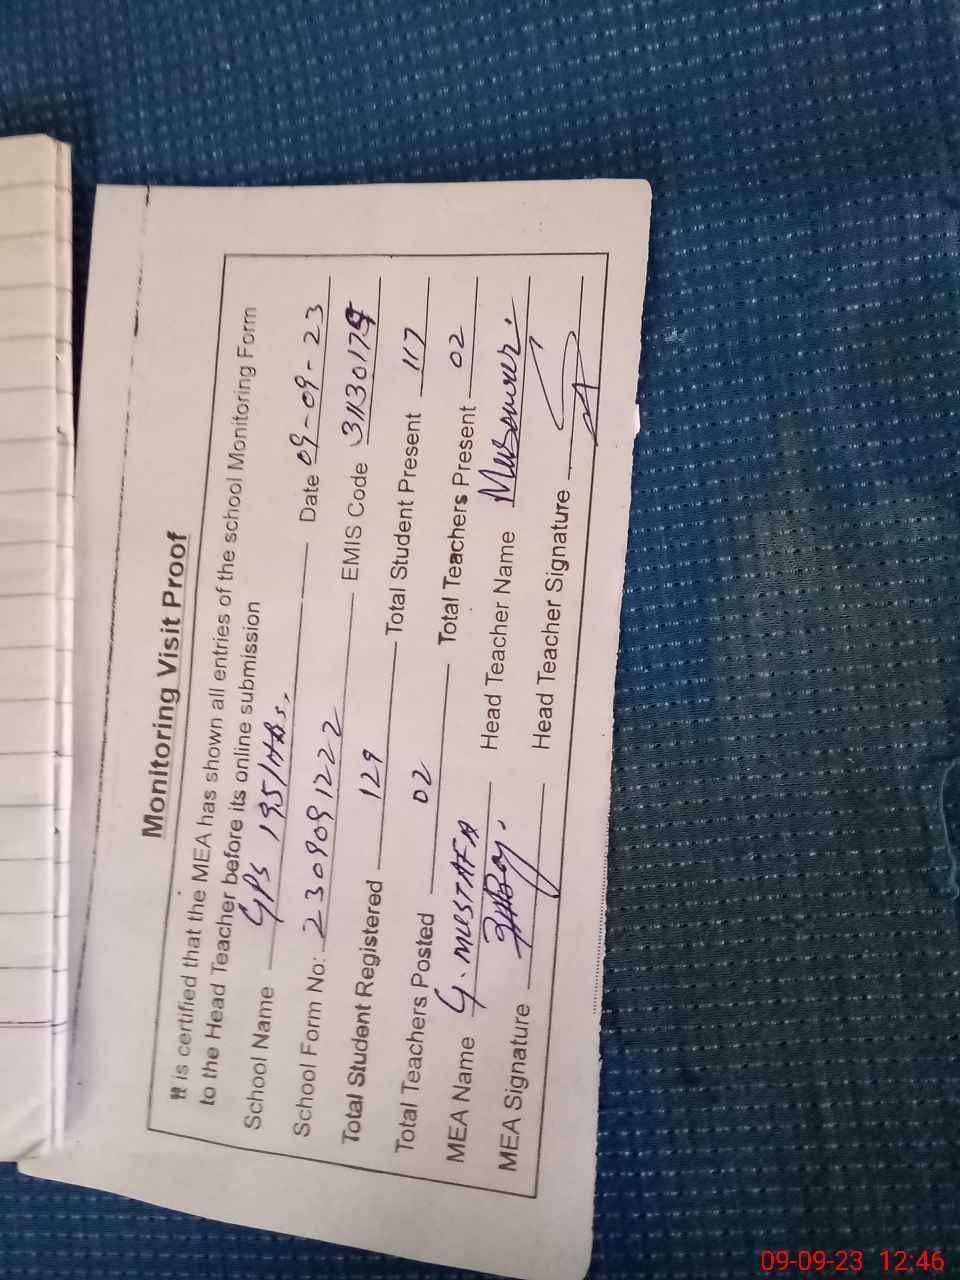 Monitoring Visit Proof
It is certified that the MEA has shown all entries of the school Monitoring Form
to the Head Teacher before its online submission
School Name GPS 195/HBs. Date 09-09-23
School Form No: 2309091222 EMIS Code 31130179
Total Student Registered 129 Total Student Present 117
Total Teachers Posted 02 Total Teachers Present 02
MEA Name G. MUSTAFA Head Teacher Name
MEA Signature Head Teacher Signature
09-09-23 12:46